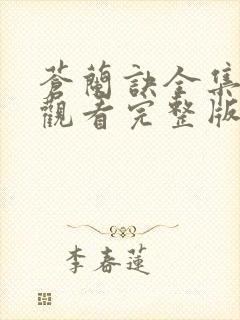 蒼蘭訣全集
觀看完整版
李春蓮